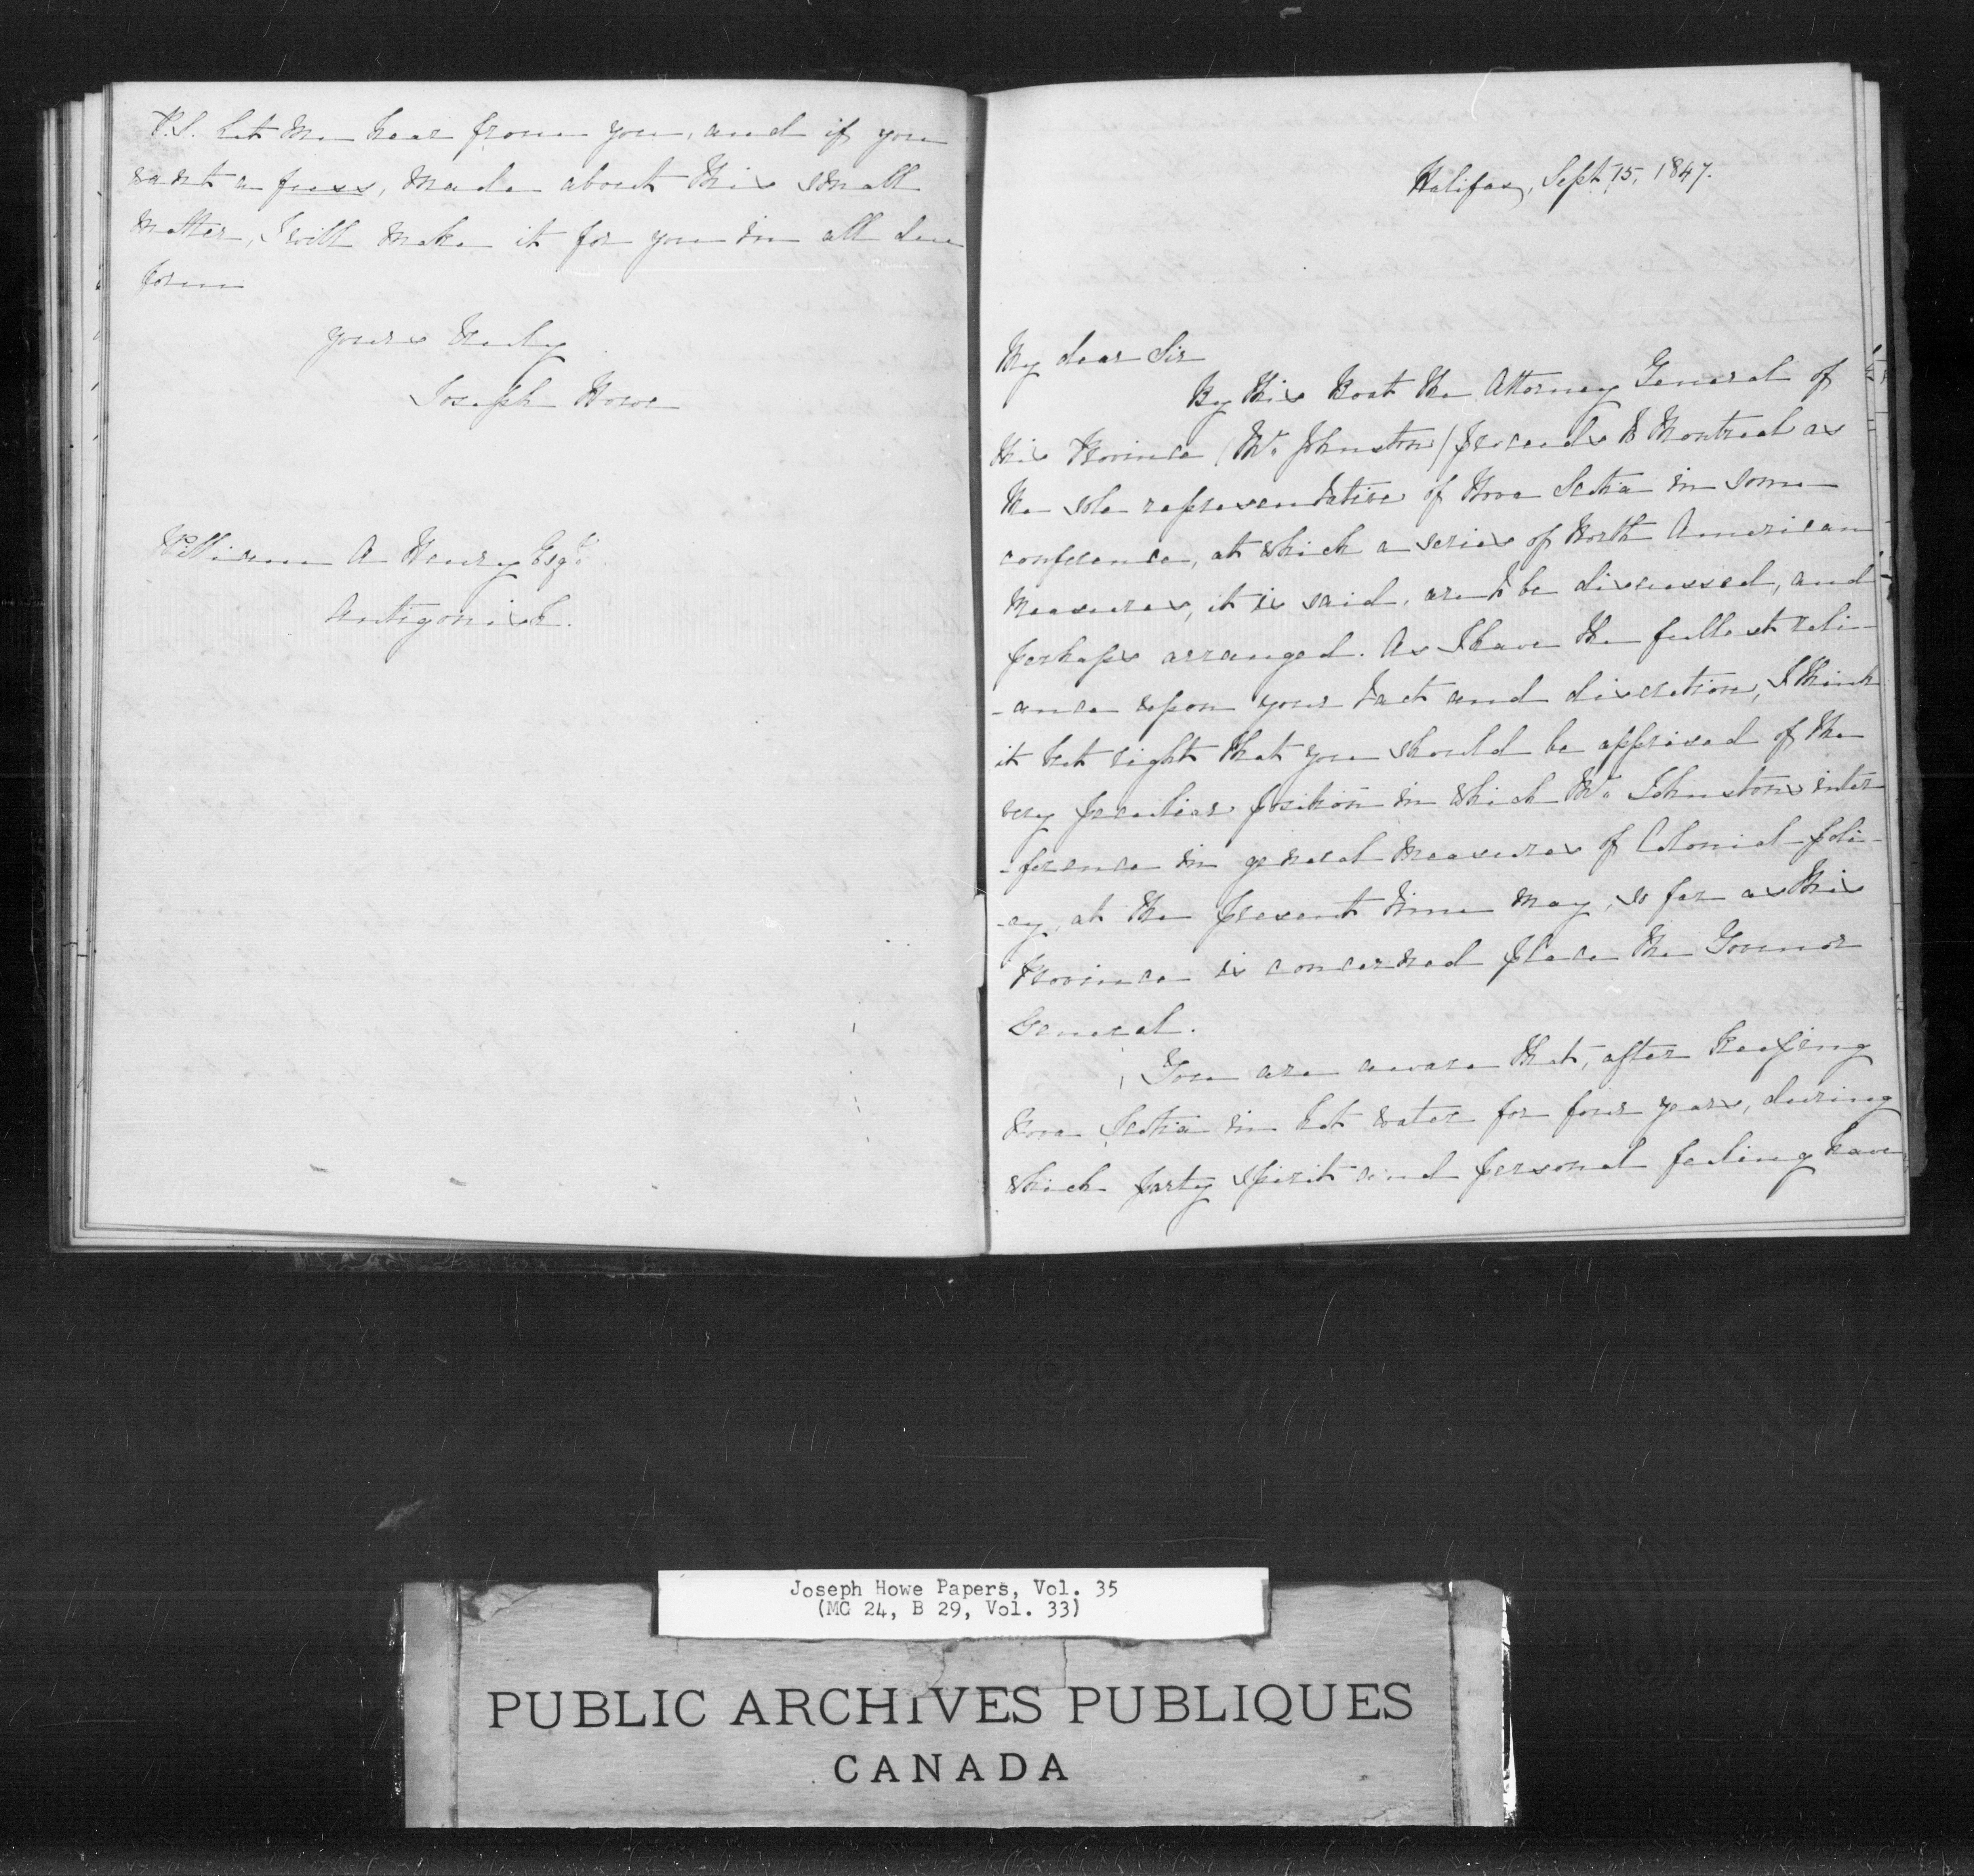 P.S. Let me hear from you, and if you
want a fuss, made about this small
matter, I will make it for you in all due
form
yours truly
Joseph Howe
William A Henry Esqr
Antigonish.
Halifax, Sept 15, 1847.
My dear Sir
By this Boat the Attorney General of
this Province (Mr. Johnston) proceeds to Montreal as
the sole representative of Nova Scotia in some
conference, at which a series of North American
measures, it is said, are to be discussed, and
perhaps arranged. As I have the fullest reli-
-ance upon your tact and discretion, I think
it but right that you should be apprised of the
very peculiar position in which Mr. Johnstons inter
-ference in general measures of Colonial poli-
-cy, at the present time may, so far as this
Province is concerned place the Govenor
General.
You are aware that, after keeping
Nova Scotia in hot water for four years, during
which party spirit and personal feeling have
Joseph Howe Papers, Vol. 35
(MG 24, B 29, Vol. 33)
PUBLIC ARCHIVES PUBLIQUES
CANADA